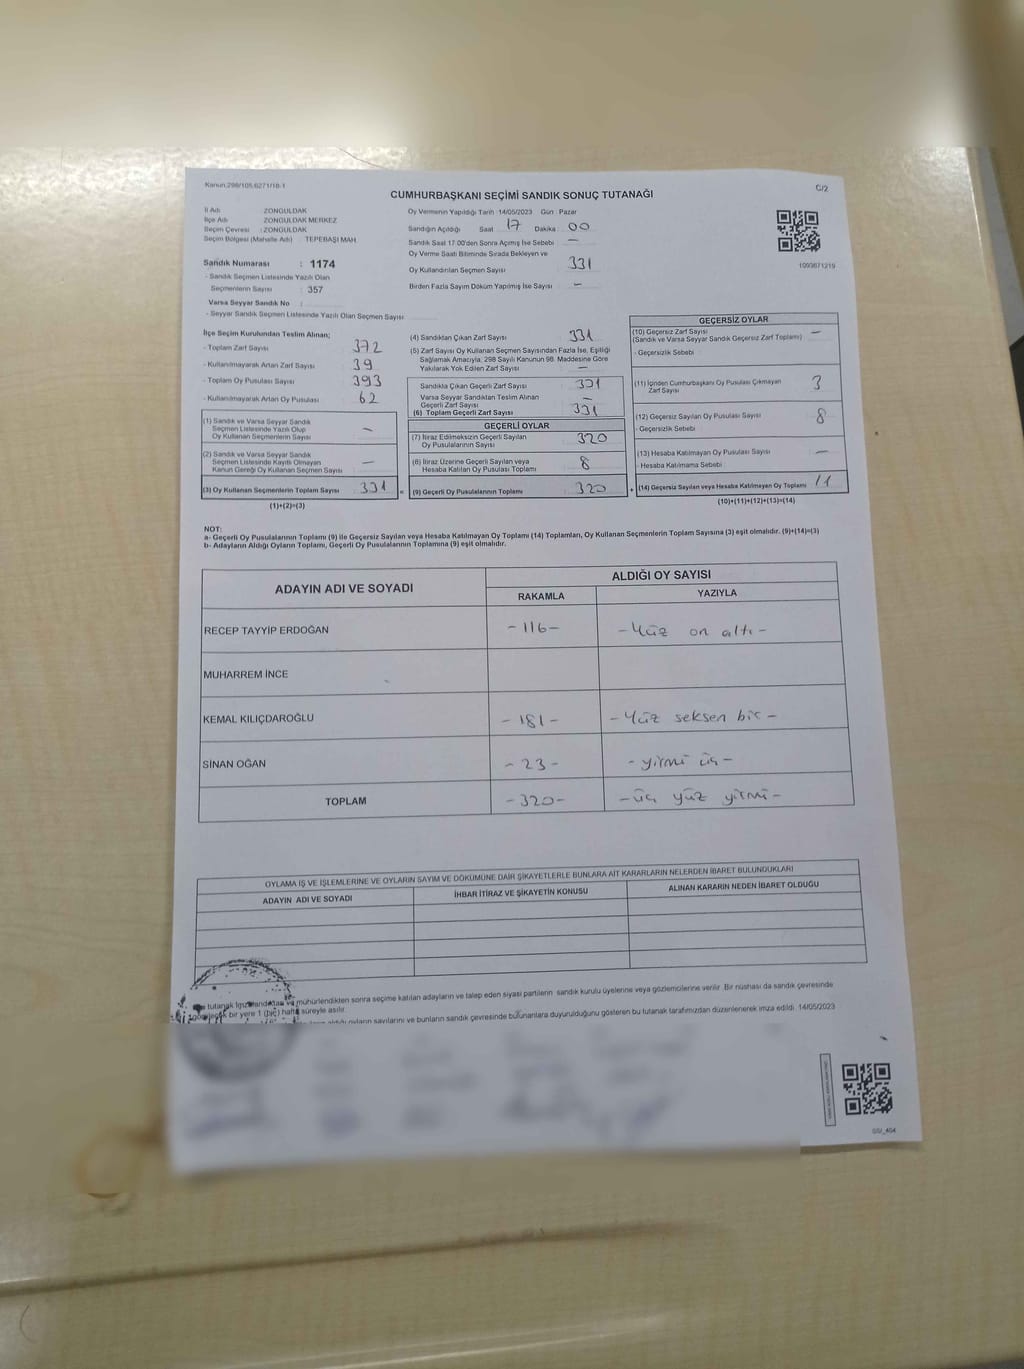 Kanun:298/105,6271/18-1
C/2
CUMHURBAŞKANI SEÇİMİ SANDIK SONUÇ TUTANAĞI
İl Adı : ZONGULDAK
İlçe Adı : ZONGULDAK MERKEZ
Seçim Çevresi : ZONGULDAK
Seçim Bölgesi (Mahalle Adı) : TEPEBAŞI MAH.
Sandık Numarası : 1174
- Sandık Seçmen Listesinde Yazılı Olan
Seçmenlerin Sayısı : 357
Varsa Seyyar Sandık No :
- Seyyar Sandık Seçmen Listesinde Yazılı Olan Seçmen Sayısı
Oy Vermenin Yapıldığı Tarih :14/05/2023 Gün : Pazar
Sandığın Açıldığı Saat 17 Dakika 00
Sandık Saat 17.00'den Sonra Açılmış İse Sebebi —
Oy Verme Saati Bitiminde Sırada Bekleyen ve
Oy Kullandırılan Seçmen Sayısı 331
Birden Fazla Sayım Döküm Yapılmış İse Sayısı -
1093671219
İlçe Seçim Kurulundan Teslim Alınan;
- Toplam Zarf Sayısı 372
- Kullanılmayarak Artan Zarf Sayısı 39
- Toplam Oy Pusulası Sayısı 393
- Kullanılmayarak Artan Oy Pusulası 62
(1) Sandık ve Varsa Seyyar Sandık
Seçmen Listesinde Yazılı Olup
Oy Kullanan Seçmenlerin Sayısı —
(2) Sandık ve Varsa Seyyar Sandık
Seçmen Listesinde Kayıtlı Olmayan
Kanun Gereği Oy Kullanan Seçmen Sayısı —
(3) Oy Kullanan Seçmenlerin Toplam Sayısı 331 =
(1)+(2)=(3)
(4) Sandıktan Çıkan Zarf Sayısı 331
(5) Zarf Sayısı Oy Kullanan Seçmen Sayısından Fazla İse, Eşitliği
Sağlamak Amacıyla, 298 Sayılı Kanunun 98. Maddesine Göre
Yakılarak Yok Edilen Zarf Sayısı —
Sandıkta Çıkan Geçerli Zarf Sayısı 331
Varsa Seyyar Sandıktan Teslim Alınan
Geçerli Zarf Sayısı —
(6) Toplam Geçerli Zarf Sayısı 331
GEÇERLİ OYLAR
(7) İtiraz Edilmeksizin Geçerli Sayılan
Oy Pusulalarının Sayısı 320
(8) İtiraz Üzerine Geçerli Sayılan veya
Hesaba Katılan Oy Pusulası Toplamı 8
(9) Geçerli Oy Pusulalarının Toplamı 320 +
GEÇERSİZ OYLAR
(10) Geçersiz Zarf Sayısı —
(Sandık ve Varsa Seyyar Sandık Geçersiz Zarf Toplamı)
- Geçersizlik Sebebi :
(11) İçinden Cumhurbaşkanı Oy Pusulası Çıkmayan
Zarf Sayısı 3
(12) Geçersiz Sayılan Oy Pusulası Sayısı 8
- Geçersizlik Sebebi :
(13) Hesaba Katılmayan Oy Pusulası Sayısı —
- Hesaba Katılmama Sebebi :
(14) Geçersiz Sayılan veya Hesaba Katılmayan Oy Toplamı 11
(10)+(11)+(12)+(13)=(14)
NOT:
a- Geçerli Oy Pusulalarının Toplamı (9) ile Geçersiz Sayılan veya Hesaba Katılmayan Oy Toplamı (14) Toplamları, Oy Kullanan Seçmenlerin Toplam Sayısına (3) eşit olmalıdır. (9)+(14)=(3)
b- Adayların Aldığı Oyların Toplamı, Geçerli Oy Pusulalarının Toplamına (9) eşit olmalıdır.
ADAYIN ADI VE SOYADI
ALDIĞI OY SAYISI
RAKAMLA YAZIYLA
RECEP TAYYİP ERDOĞAN -116- -Yüz on altı-
MUHARREM İNCE
KEMAL KILIÇDAROĞLU -181- -Yüz seksen bir-
SİNAN OĞAN -23- -yirmi üç-
TOPLAM -320- -üç yüz yirmi-
OYLAMA İŞ VE İŞLEMLERİNE VE OYLARIN SAYIM VE DÖKÜMÜNE DAİR ŞİKAYETLERLE BUNLARA AİT KARARLARIN NELERDEN İBARET BULUNDUKLARI
ADAYIN ADI VE SOYADI İHBAR İTİRAZ VE ŞİKAYETİN KONUSU ALINAN KARARIN NEDEN İBARET OLDUĞU
tutanak imzalandıktan ve mühürlendikten sonra seçime katılan adayların ve talep eden siyasi partilerin sandık kurulu üyelerine veya gözlemcilerine verilir. Bir nüshası da sandık çevresinde
bir yere 1 (bir) hafta süreyle asılır.
aldığı oyların sayılarını ve bunların sandık çevresinde bulunanlara duyurulduğunu gösteren bu tutanak tarafımızdan düzenlenerek imza edildi. 14/05/2023
GSI_404